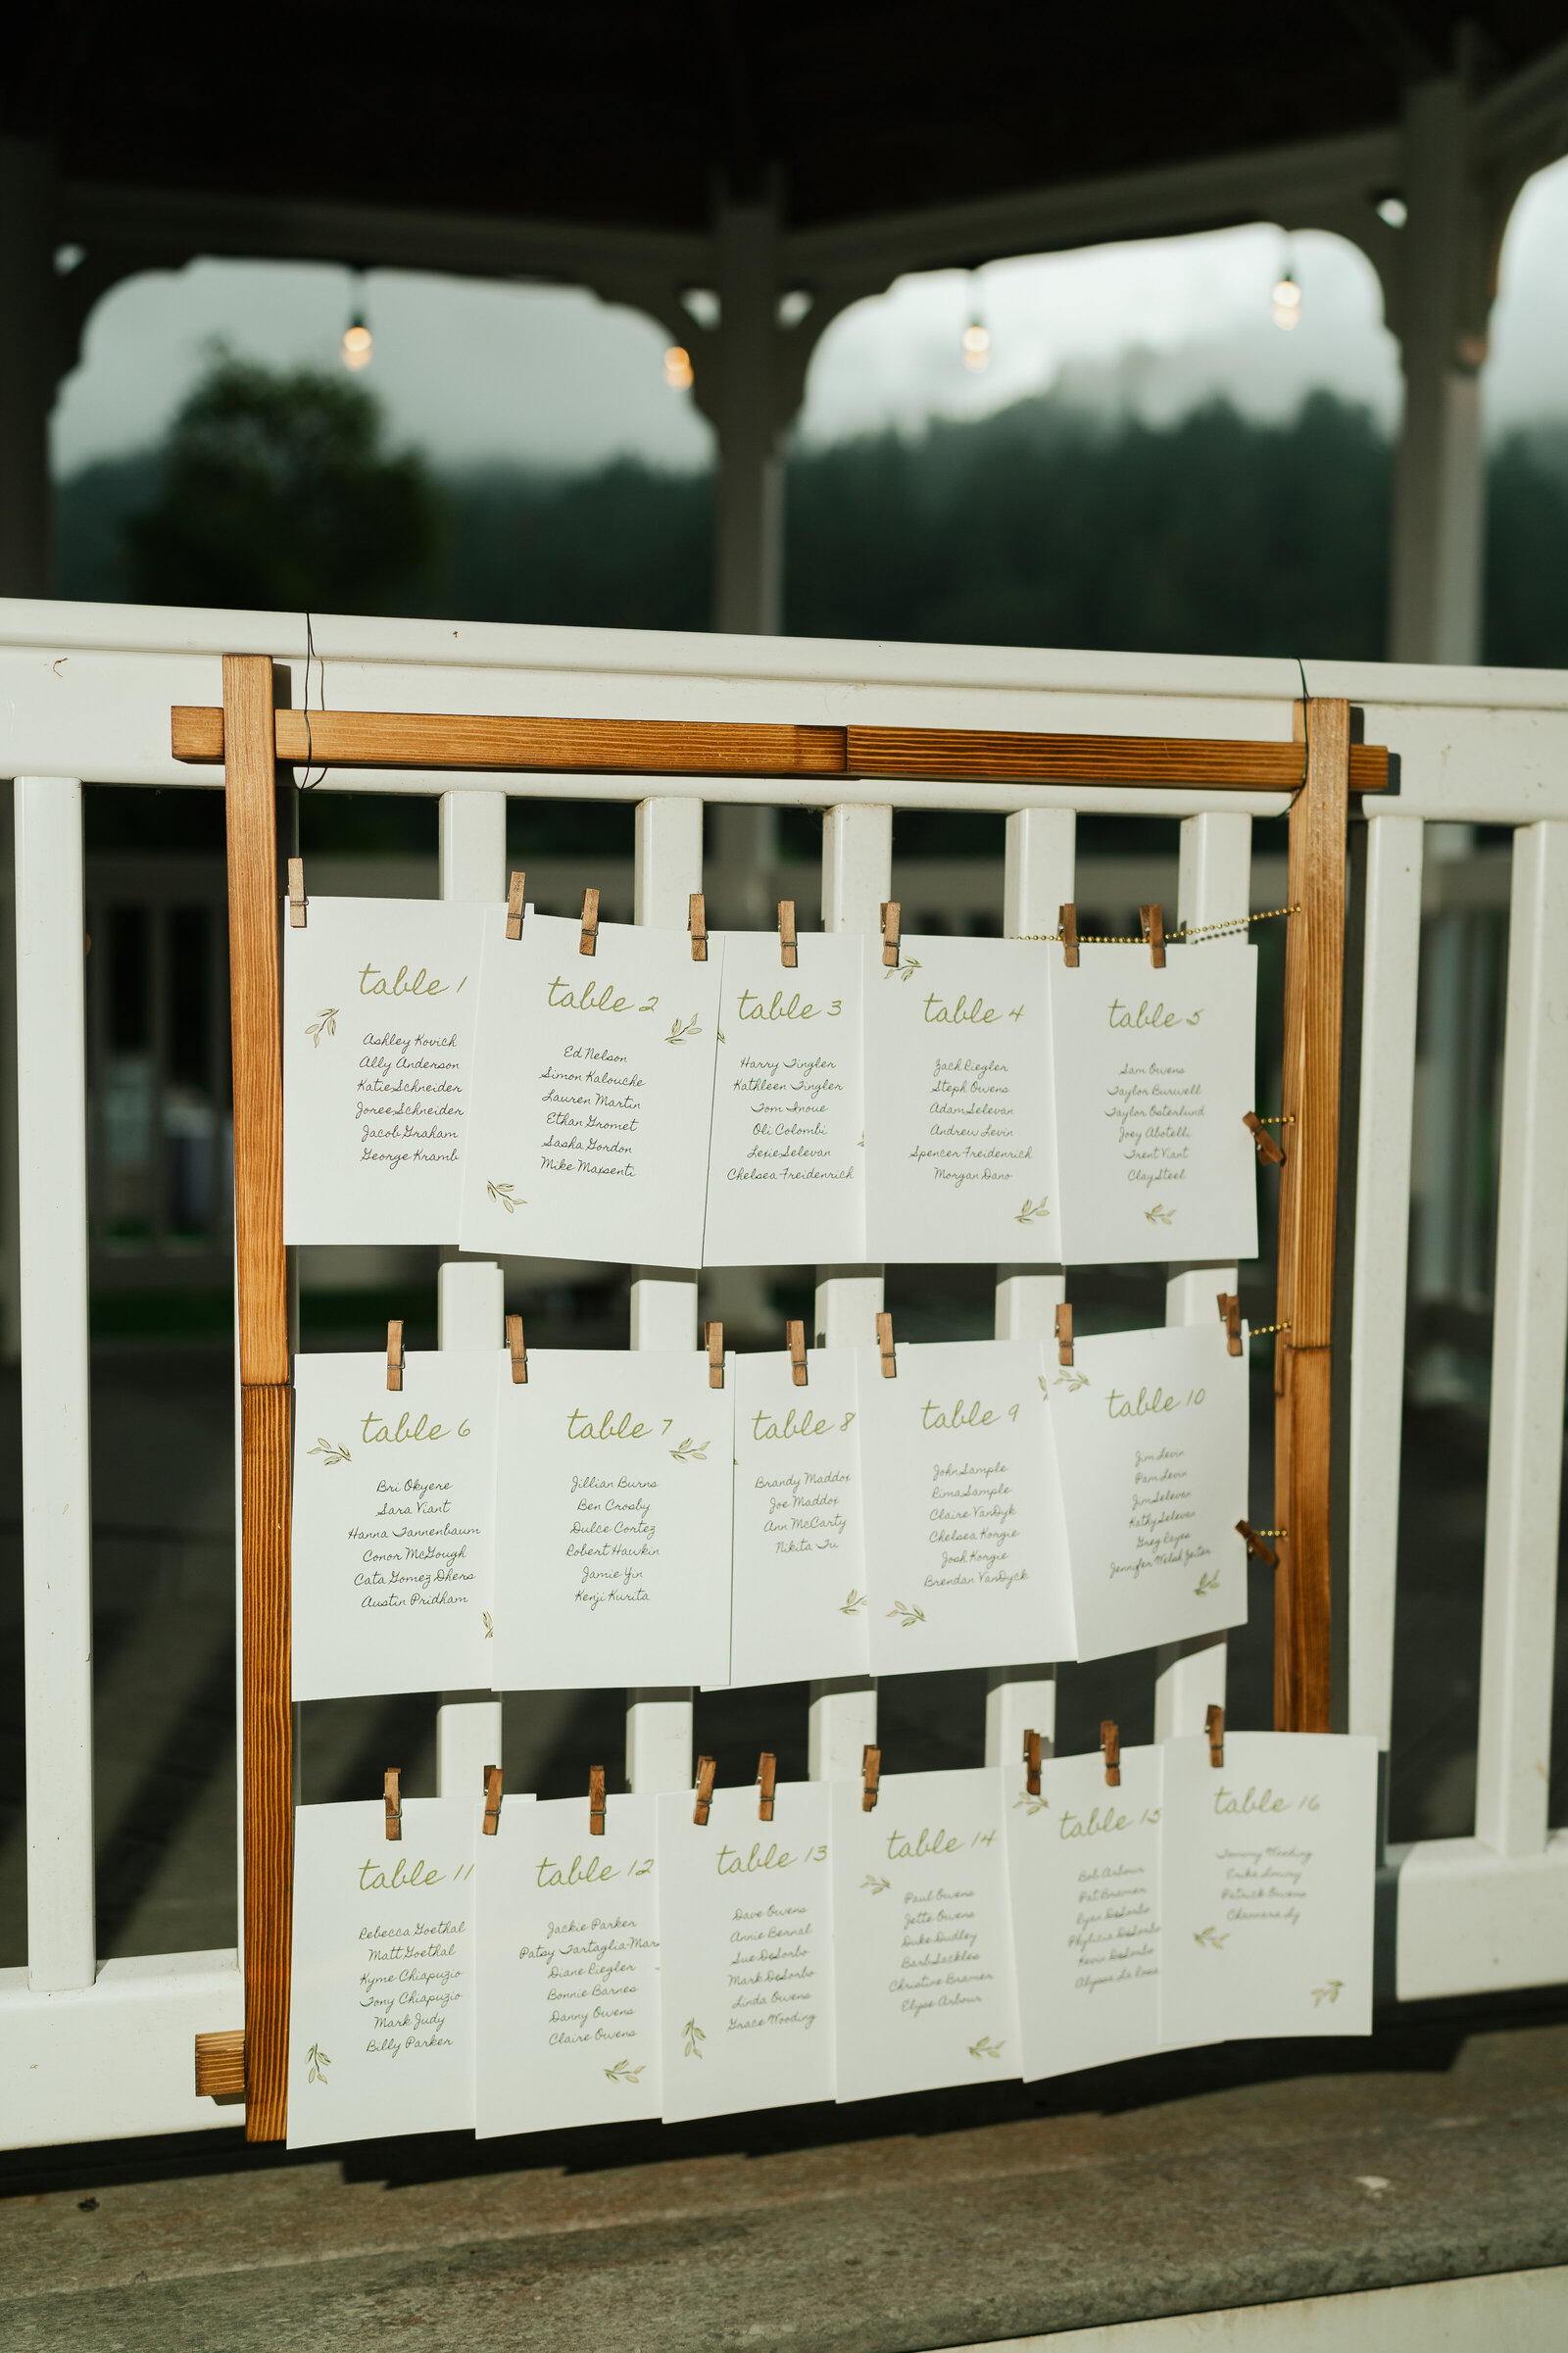 table 1
Ashley Kovich
Ally Anderson
Katie Schneider
Joree Schneider
Jacob Graham
George Kramb
table 2
Ed Nelson
Simon Kalouche
Lauren Martin
Ethan Gromet
Sasha Gordon
Mike Maxsenti
table 3
Harry Tingler
Kathleen Tingler
Tom Inoue
Oli Colombi
Lexie Selevan
Chelsea Freidenrich
table 4
Zach Riegler
Steph Owens
Adam Selevan
Andrew Levin
Spencer Freidenrich
Morgan Dano
table 5
Sam Owens
Taylor Burwell
Taylor Osterlund
Joey Abotelli
Trent Viant
Clay Steel
table 6
Bri Okyere
Sara Viant
Hanna Tannenbaum
Conor McGough
Cata Gomez Dhers
Austin Pridham
table 7
Jillian Burns
Ben Crosby
Dulce Cortez
Robert Hawkin
Jamie Yin
Kenji Kurita
table 8
Brandy Maddox
Joe Maddox
Ann McCarty
Nikita Tu
table 9
John Sample
Rima Sample
Claire VanDyk
Chelsea Korgie
Josh Korgie
Brendan VanDyck
table 10
Jim Levin
Pam Levin
Jim Selevan
Kathy Selevan
Greg Reyes
Jennifer Welsh
table 11
Rebecca Goethal
Matt Goethal
Kyme Chiapuzio
Tony Chiapuzio
Mark Judy
Billy Parker
table 12
Jackie Parker
Patsy Tartaglia-Mar
Diane Riegler
Bonnie Barnes
Danny Owens
Claire Owens
table 13
Dave Owens
Annie Bernal
Sue DeSorbo
Mark DeSorbo
Linda Owens
Grace Wooding
table 14
Paul Owens
Jette Owens
Duke Dudley
Barb Sackles
Christine Bramer
Elyse Arbour
table 15
Bob Arbour
Pat Bramer
Ryan DeSorbo
Phylicia DeSorbo
Kevin DeSorbo
Alyssa La Rosa
table 16
Tommy Wooding
Erika Lowry
Patrick Owens